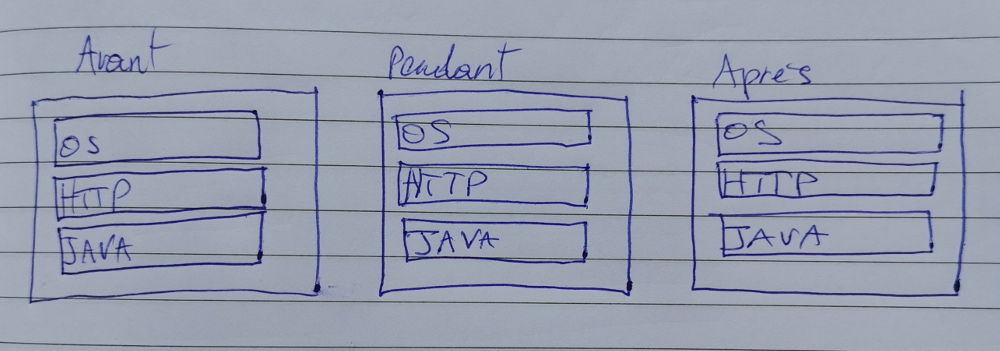 Avant Pendant Après
OS OS OS
HTTP HTTP HTTP
JAVA JAVA JAVA